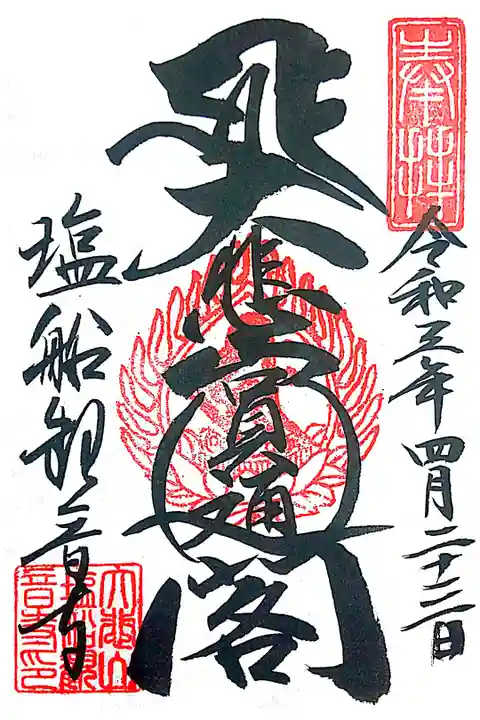 奉拝
令和三年四月二十二日
大悲圓通閣
塩船観音寺
大悲山
塩船観
音寺印